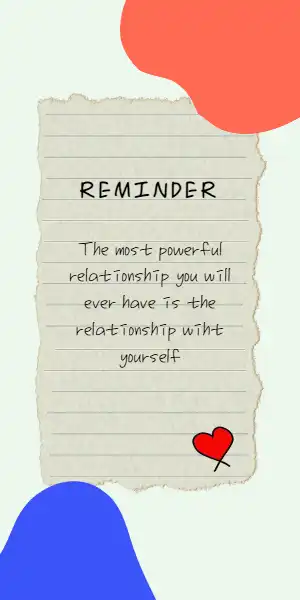 REMINDER
The most powerful
relationship you will
ever have is the
relationship wiht
yourself